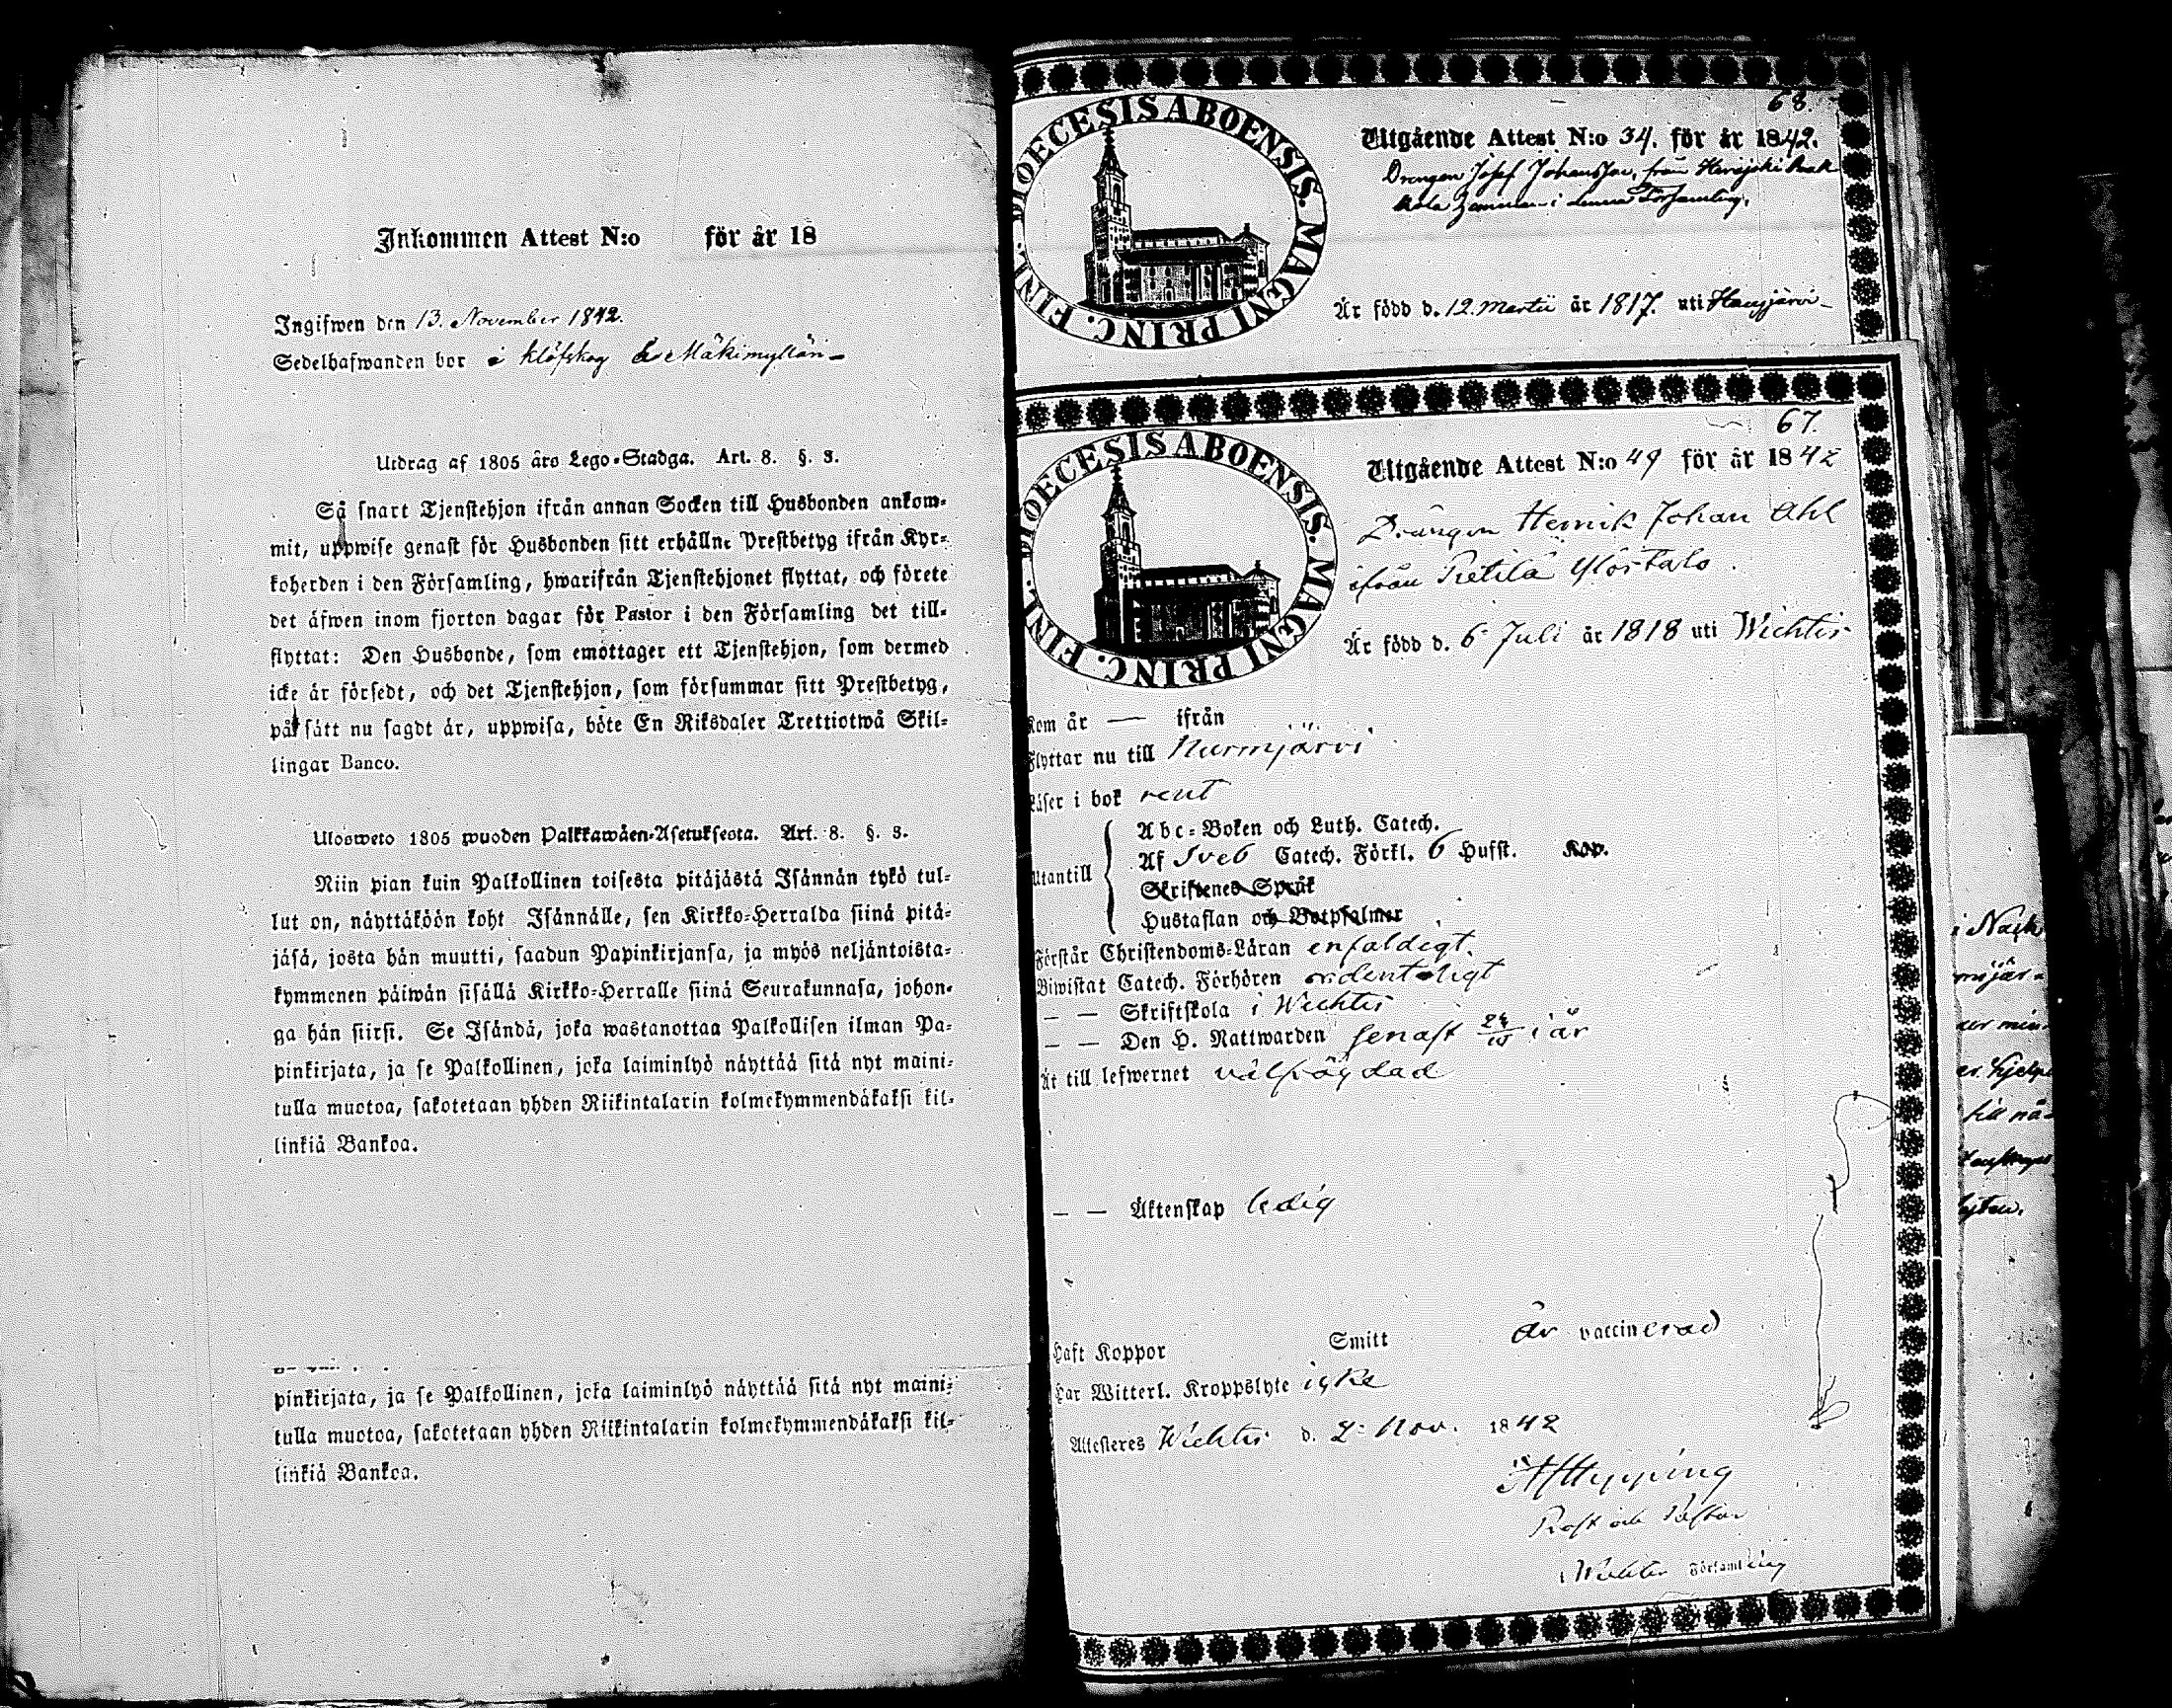 Inkommen Attest N:o för år 18
Ingifwen den 13. November 1842.
Sedelhafwanden bor i Klöfskog Mäkimylläri
Utdrag af 1805 års Lego-Stadga. Art. 8. §. 3.
Så snart Tjenstehjon ifrån annan Socken till Husbonden ankom-
mit, uppwise genast för Husbonden sitt erhållne Prestbetyg ifrån Kyr-
koherden i den Församling, hwarifrån Tjenstehjonet flyttat, och förete
det äfwen inom fjorton dagar för Pastor i den Församling det till-
flyttat: Den Husbonde, som emottager ett Tjenstehjon, som dermed
icke är försedt, och det Tjenstehjon, som försummar sitt Prestbetyg,
på sätt nu sagdt är, uppwisa, böte En Riksdaler Trettiotwå Skil-
lingar Banco.
Ulosweto 1805 wuoden Palkkawäen-Asetuksesta. Art. 8. §. 3.
Niin pian kuin Palkollinen toisesta pitäjästä Isännän tykö tul-
lut on, näyttäköön koht Isännälle, sen Kirkko-Herralda siinä pitä-
jäsä, josta hän muutti, saadun Papinkirjansa, ja myös neljäntoista-
kymmenen päiwän sisällä Kirkko-Herralle siinä Seurakunnasa, johon-
ga hän siirsi. Se Isändä, joka wastanottaa Palkollisen ilman Pa-
pinkirjata, ja se Palkollinen, joka laiminlyö näyttää sitä nyt maini-
tulla muotoa, sakotetaan yhden Riikintalarin kolmekymmendäkaksi kil-
linkiä Bankoa.
pinkirjata, ja se Palkollinen, joka laiminlyö näyttää sitä nyt maini-
tulla muotoa, sakotetaan yhden Riikintalarin kolmekymmendäkaksi kil-
linkiä Bankoa.
68.
DIOECESIS ABOENSIS. MAGNI PRINC. FINL.
Utgående Attest N:o 34. för år 1842.
Drengen Josef Johansson, från
i denna Församling.
Är född d. 12. Martii år 1817. uti Hausjärvi
67.
DIOECESIS ABOENSIS. MAGNI PRINC. FINL.
Utgående Attest N:o 49 för år 1842
Drängen Henrik Johan Ahl
ifrån Pietilä Ylöstalo.
Är född d. 6 Juli år 1818 uti Wichtis
Kom år — ifrån
Flyttar nu till Nurmjärvi
Läser i bok rent
Utantill
Abc-Boken och Luth. Catech.
Af Sveb Catech. Förkl. 6 Hufst. Kap.
Skriftenes Språk
Hustaflan och Botpsalmer
Förstår Christendoms-Läran enfaldigt
Biwistat Catech. Förhören ordentligt
— — Skriftskola i Wichtis
— — Den H. Nattwarden senast 24/10 i år
Är till lefwernet välfrägdad
— — Äktenskap ledig
Haft Koppor Smitt är vaccinerad
Har Witterl. Kroppslyte icke
Attesteres Wichtis d. 2 Nov. 1842
Prost och Pastor
i Wichtis Församling